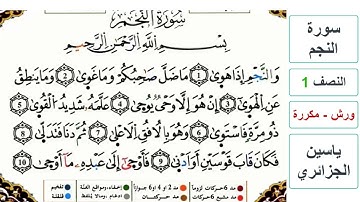 سُورَةُ النَّجْمِ
بِسْمِ اللَّهِ الرَّحْمَٰنِ الرَّحِيمِ
وَالنَّجْمِ إِذَا هَوَىٰ 1 مَا ضَلَّ صَاحِبُكُمْ وَمَا غَوَىٰ 2 وَمَا يَنطِقُ
عَنِ الْهَوَىٰ 3 إِنْ هُوَ إِلَّا وَحْيٌ يُوحَىٰ 4 عَلَّمَهُ شَدِيدُ الْقُوَىٰ 5
ذُو مِرَّةٍ فَاسْتَوَىٰ 6 وَهُوَ بِالْأُفُقِ الْأَعْلَىٰ 7 ثُمَّ دَنَا فَتَدَلَّىٰ 8
فَكَانَ قَابَ قَوْسَيْنِ أَوَ ادْنَىٰ 9 فَأَوْحَىٰ إِلَىٰ عَبْدِهِ مَا أَوْحَىٰ 10
سورة
النجم
النصف 1
ورش - مكررة
ياسين
الجزائري